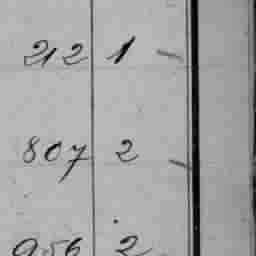 212 1 -
807 2 -
956 2